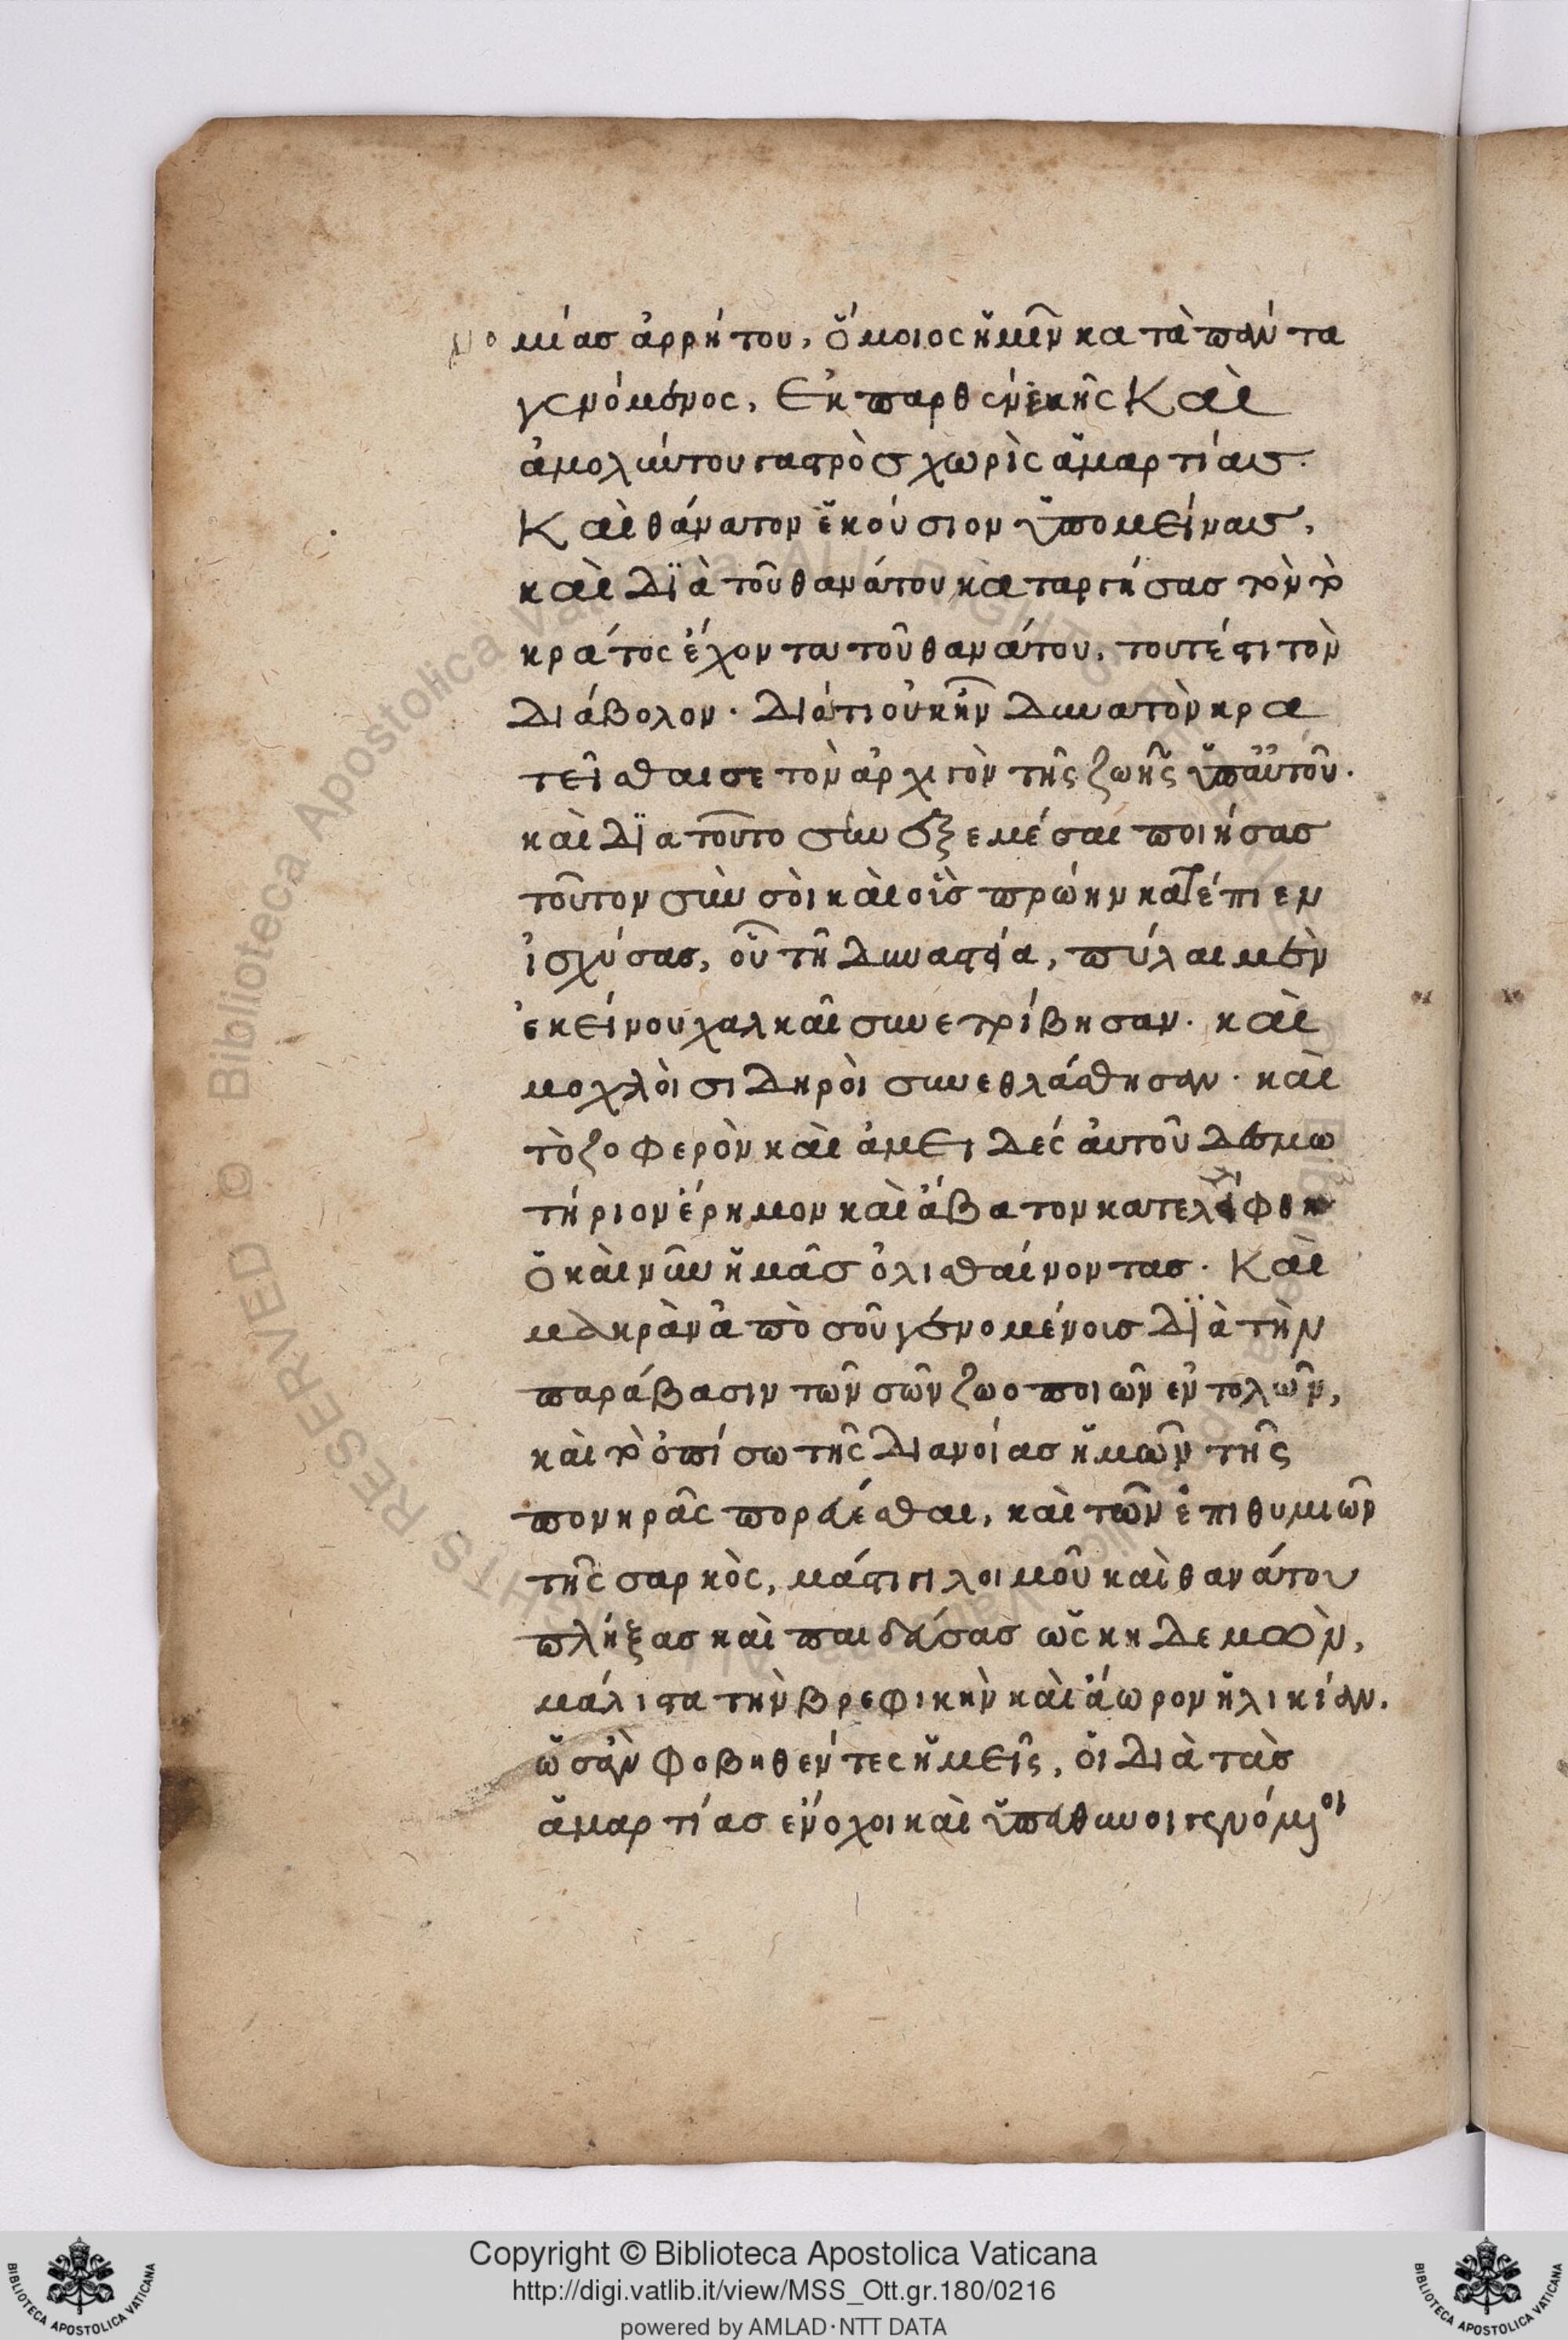 νο μίας ἀρρήτου, ὅμοιος ἡμῖν κατὰ πάντα
γενόμενος, Ἐκ παρθενϊκῆς Καὶ
ἀμολύντου γαστρὸς χωρὶς ἁμαρτίας.
Καὶ θάνατον ἑκούσιον ὑπομείνας,
καὶ δϊὰ τοῦ θανάτου καταργήσας τὸν τὸ
κράτος ἔχοντα τοῦ θανάτου, τουτέστι τὸν
διάβολον. διότι οὐκ ἦν δυνατὸν κρα
τεῖσθαι σε τὸν ἀρχιγὸν τῆς ζωῆς ὑπ' αὐτοῦ.
καὶ δϊα τοῦτο σὺν ἐξεμέσαι ποιήσας
τοῦτον σὺν σὸι καὶ οἷς πρώην κατέπιεν
ἰσχύσας, οὗ τῆ δυναστεία, πύλαι μὲν
ἐκείνου χαλκαῖ συνετρίβησαν. καὶ
μοχλὸι σιδηρὸι συνεθλάσθησαν. καὶ
τὸ ζοφερὸν καὶ ἀμειδὲς ἀυτοῦ δεσμω
τήριον ἔρημον καὶ ἄβατον κατελείφθη
ὁ καὶ νῦν ἡμᾶς ὀλισθαίνοντας. Καὶ
μακρὰν ἀπὸ σοῦ γενομένοις δϊὰ τὴν
παράβασιν τῶν σῶν ζωοποιῶν ἐντολῶν,
καὶ τὸ ὀπίσω τῆς διανοίας ἡμῶν τῆς
πονηρᾶς πορεύεσθαι, καὶ τῶν ἐπιθυμιῶν
τῆς σαρκὸς, μάστιγι λοιμοῦ καὶ θανάτου
πλήξας καὶ παιδεύσας ὡς κηδεμὼν,
μάλιστα τὴν βρεφικὴν καὶ ἄωρον ἡλικίαν.
ὡς ἂν φοβηθέντες ἡμεῖς, οἱ διὰ τὰς
ἁμαρτίας ἔνοχοι καὶ ὑπεύθυνοι γενόμενοι
Copyright © Biblioteca Apostolica Vaticana
http://digi.vatlib.it/view/MSS_Ott.gr.180/0216
powered by AMLAD·NTT DATA